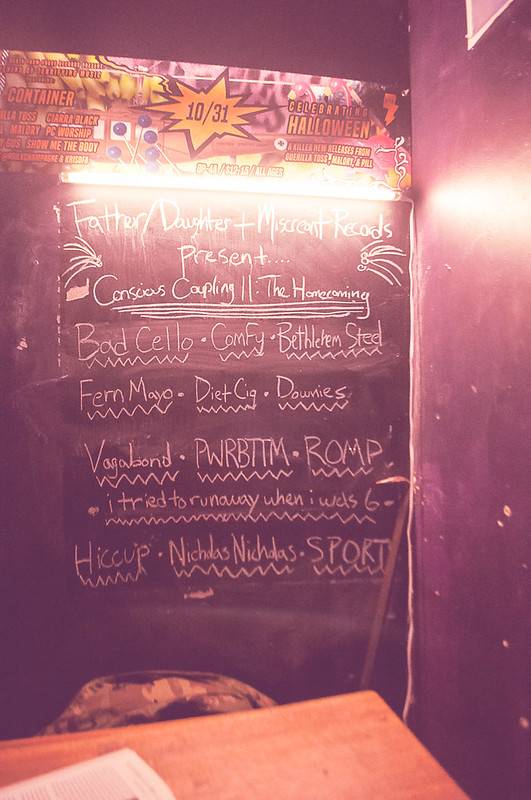 CONTAINER
TOSS CIARRA BLACK
MALORY PC WORSHIP
SHOW ME THE BODY
10/31
CELEBRATING
HALLOWEEN
& KILLER NEW RELEASES FROM
GUERILLA TOSS, MALORY, & PILL
/ ALL AGES
Father/Daughter + Miscreant Records
Present....
Conscious Coupling II: The Homecoming
Bad Cello · Comfy · Bethlehem Steel
Fern Mayo · Diet Cig · Downies
Vagabond · PWRBTTM · ROMP
· i tried to runaway when i was 6 -
Hiccup · Nicholas Nicholas · SPORT